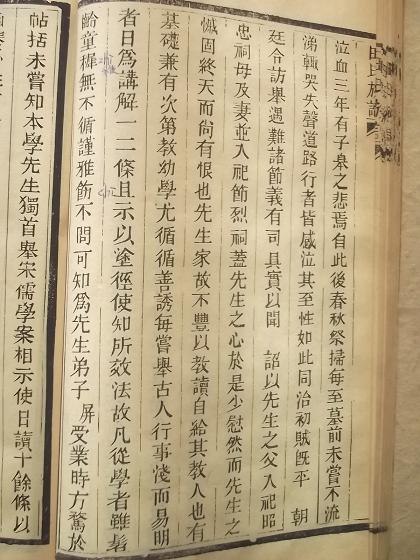 泣血三年有子皋之悲焉自此後春秋祭掃每至墓前未嘗不流
涕輒哭失聲道路行者皆感泣其至性如此同治初賊既平　朝
廷令訪舉遇難諸節義有司具實以聞　詔以先生之父入祀昭
忠祠母及妻並入祀節烈祠蓋先生之心於是少慰然而先生之
慽固終天而尚有恨也先生家故不豐以教讀自給其教人也有
基礎兼有次第教幼學尤循循善誘每嘗舉古人行事淺而易明
者日為講解一二條且示以塗徑使知所效法故凡從學者雖髫
齡童穉無不循謹雅飭不問可知為先生弟子　屏受業時方騖於
帖括未嘗知本學先生獨首舉宋儒學案相示使日讀十餘條以